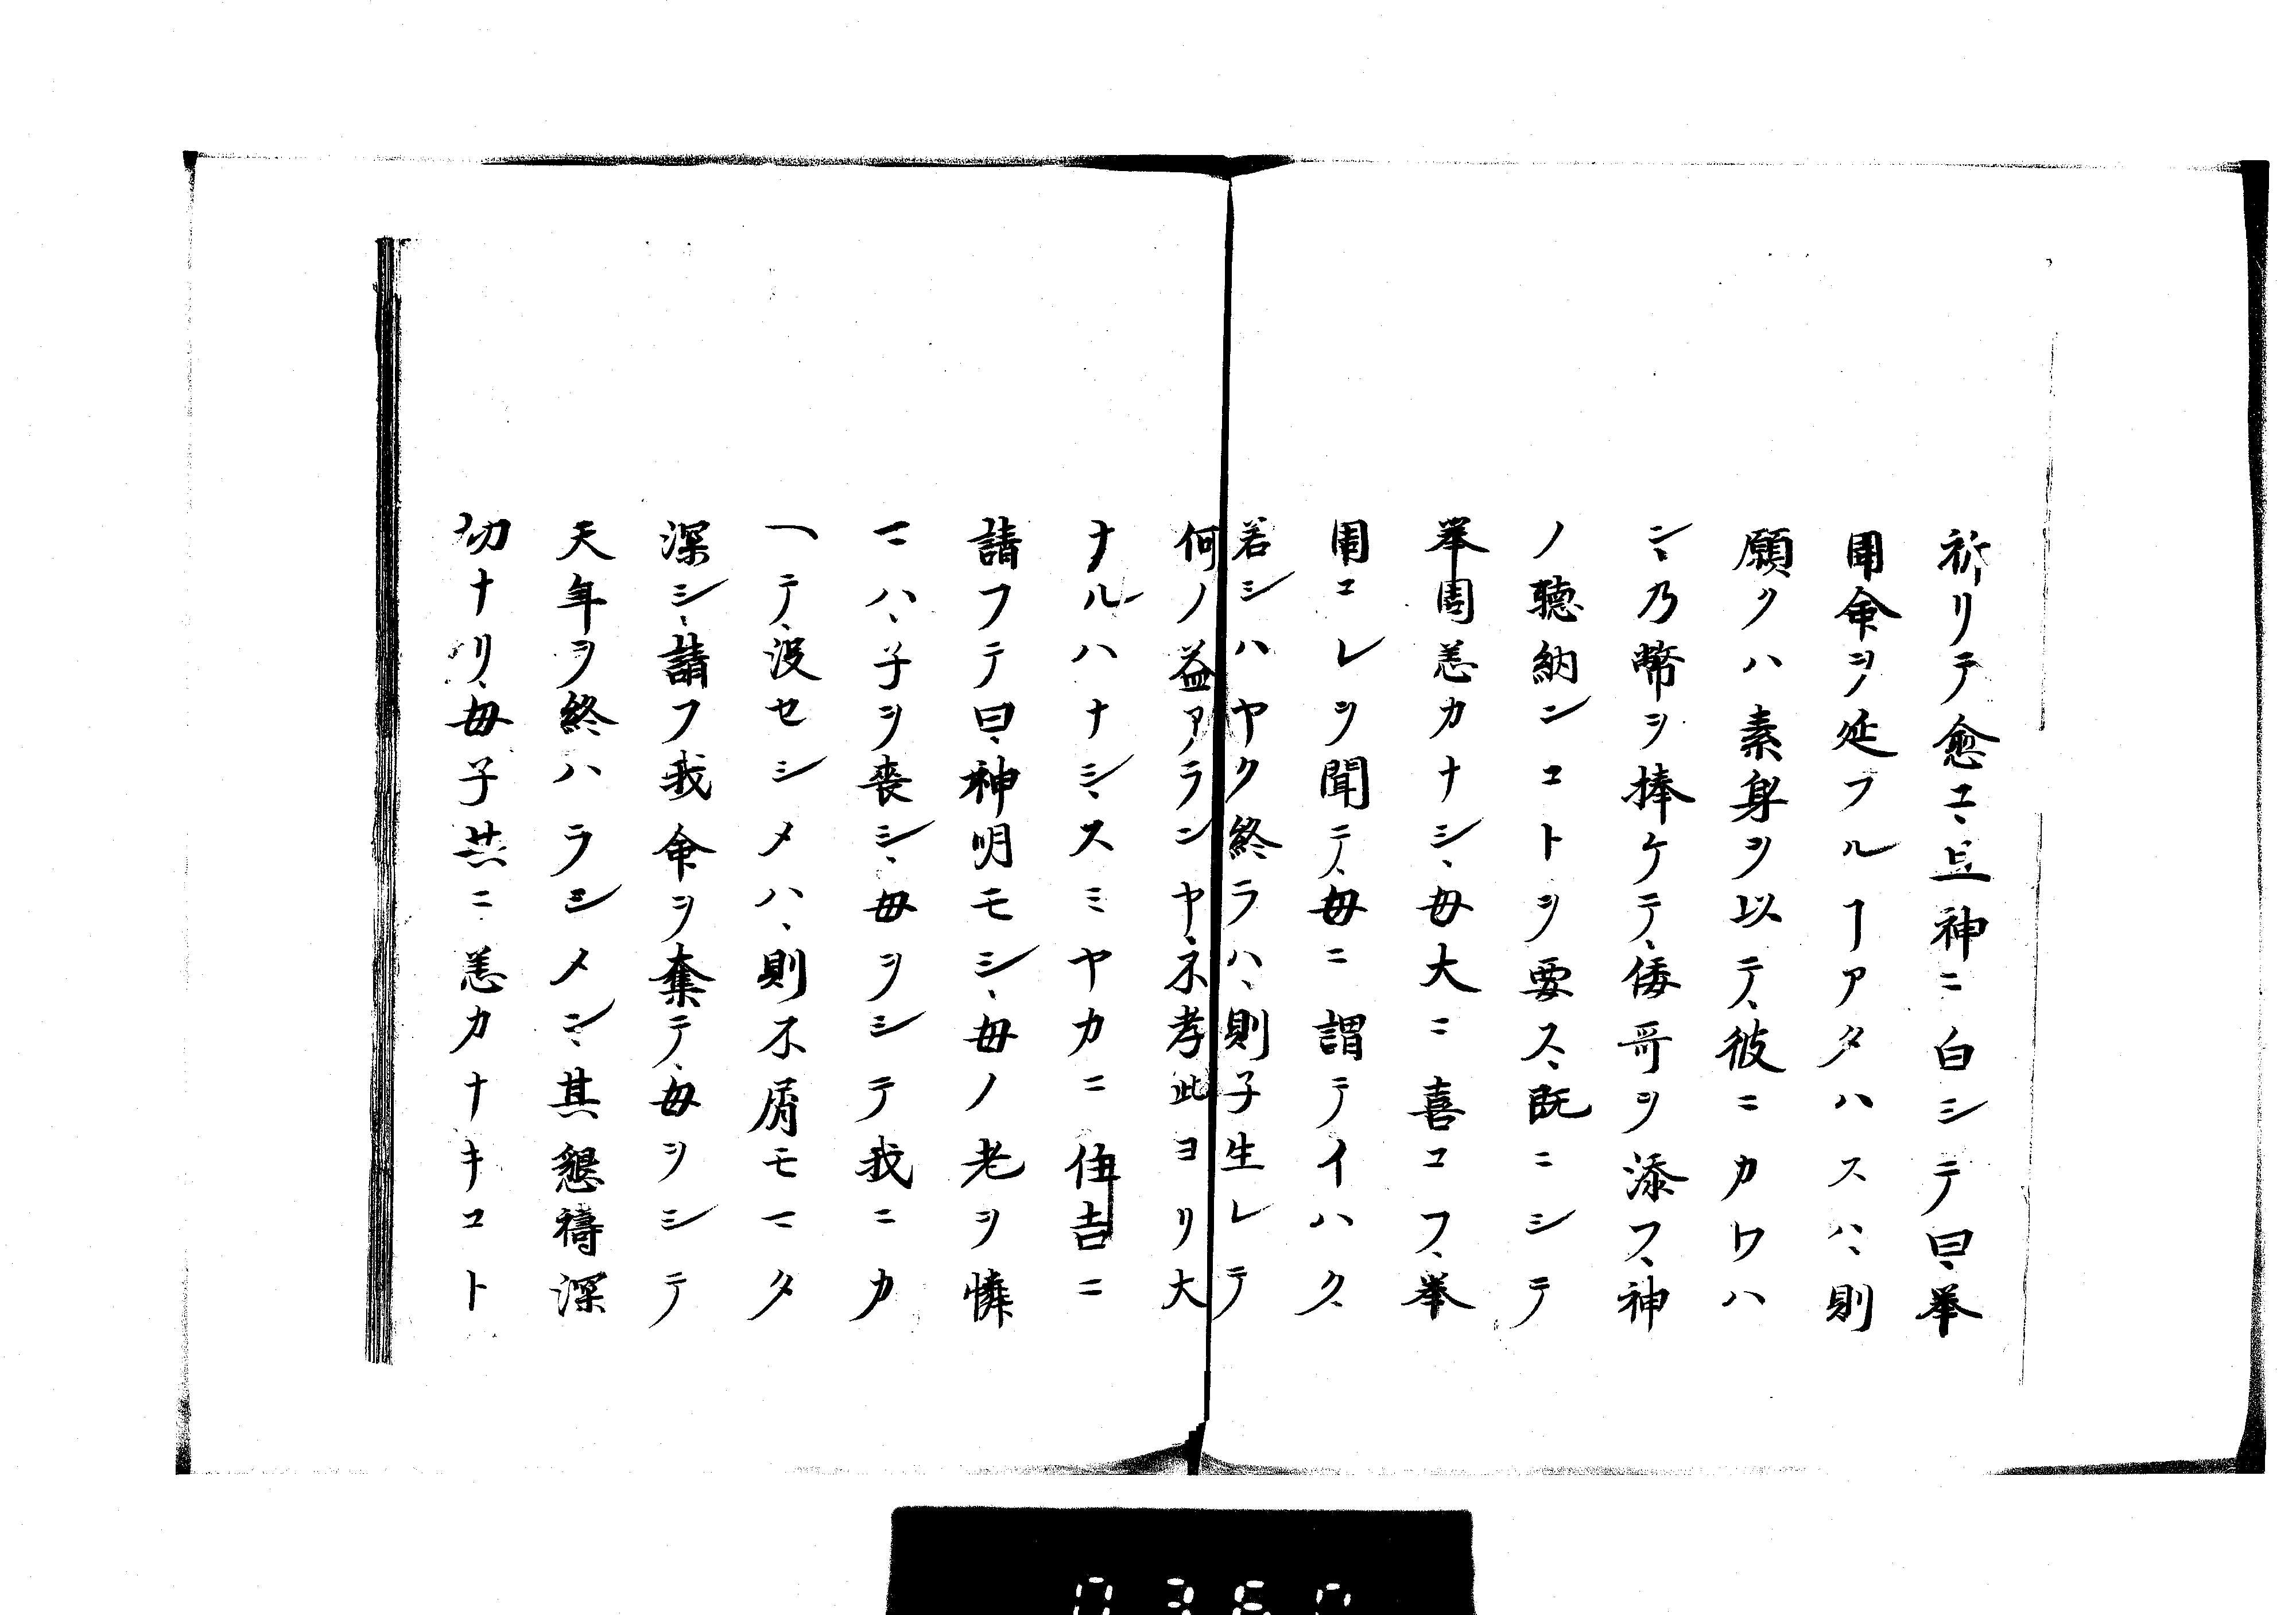 祈リテ愈ユ、且神ニ白シテ曰、挙
周命ヲ延フルヿアタハスハ、則
願クハ素身ヲ以テ、彼ニカワハ
ン、乃幣ヲ捧ケテ、倭哥ヲ添フ、神
ノ聴納ンコトヲ要ス、既ニシテ
挙周恙カナシ、毋大ニ喜コフ、挙
周コレヲ聞テ、毋ニ謂テイハク、
若シハヤク終ラハ、則子生レテ
何ノ益アランヤ、不孝此ヨリ大
ナルハナシ、スミヤカニ住吉ニ
請フテ曰、神明モシ、毋ノ老ヲ憐
マハ、子ヲ喪シ、毋ヲシテ我ニカ
ヘテ、没セシメハ、則不屑モマタ
深シ、請フ我命ヲ奪テ、毋ヲシテ
天年ヲ終ハラシメン、其懇禱深
切ナリ、毋子共ニ恙カナキコト
0360